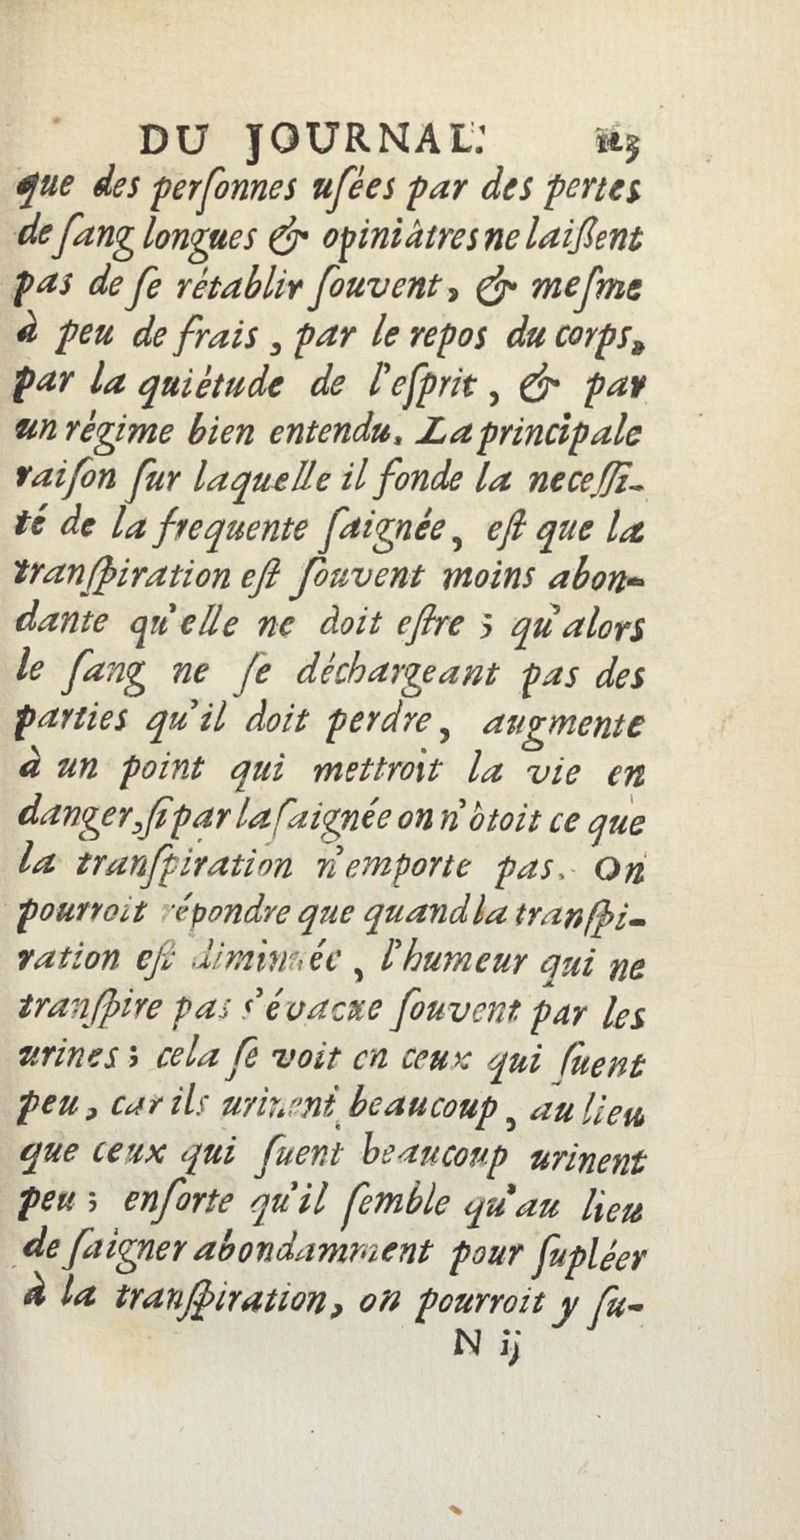 DU JOURNAL.
que des perſonnes uſées par des pertes
de ſang longues & opiniâtres ne laiſſent
pas de ſe rétablir ſouvent, & meſme
à peu de frais, par le repos du corps,
par la quiétude de l'eſprit, & par
un régime bien entendu. La principale
raiſon ſur laquelle il fonde la neceſſi-
té de la frequente ſaignée, eſt que la
tranſpiration eſt ſouvent moins abon-
dante qu'elle ne doit eſtre ; qu'alors
le ſang ne ſe déchargeant pas des
parties qu'il doit perdre, augmente
à un point qui mettroit la vie en
danger, ſi par la ſaignée on n'ôtoit ce que
la tranſpiration n'emporte pas. On
pourroit répondre que quand la tranſpi-
ration eſt diminuée, l'humeur qui ne
tranſpire pas s'évacue ſouvent par les
urines ; cela ſe voit en ceux qui ſuent
peu, car ils urinent beaucoup, au lieu
que ceux qui ſuent beaucoup urinent
peu ; enſorte qu'il ſemble qu'au lieu
de ſaigner abondamment pour ſupléer
à la tranſpiration, on pourroit y ſu-
N ij